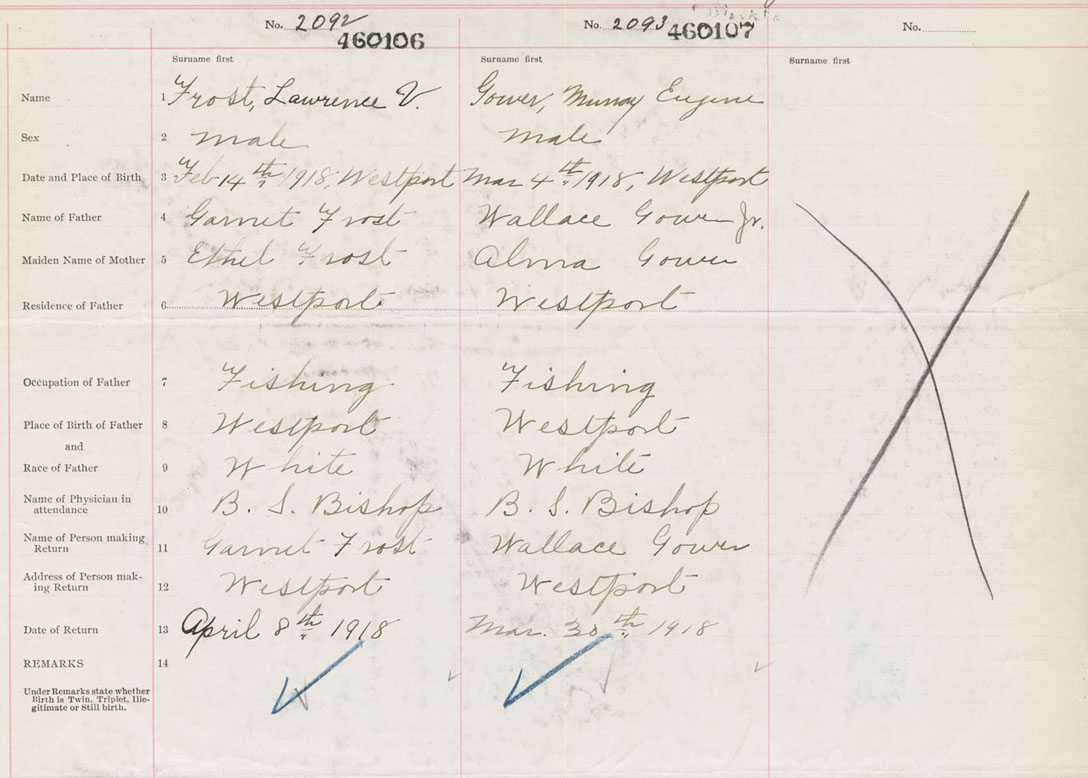 No. 2092 No. 2093 No.
460106 460107
Surname first Surname first Surname first
Name 1 Frost, Lawrence V. Gower, Murray Eugene
Sex 2 male male
Date and Place of Birth 3 Feb 14th 1918, Westport Mar 4th 1918, Westport
Name of Father 4 Garnet Frost Wallace Gower Jr.
Maiden Name of Mother 5 Ethel Frost Alma Gower
Residence of Father 6 Westport Westport
Occupation of Father 7 Fishing Fishing
Place of Birth of Father 8 Westport Westport
and
Race of Father 9 White White
Name of Physician in
attendance 10 B. S. Bishop B. S. Bishop
Name of Person making
Return 11 Garnet Frost Wallace Gower
Address of Person mak-
ing Return 12 Westport Westport
Date of Return 13 April 8th 1918 Mar. 30th 1918
REMARKS 14
Under Remarks state whether
Birth is Twin, Triplet, Ille-
gitimate or Still birth.